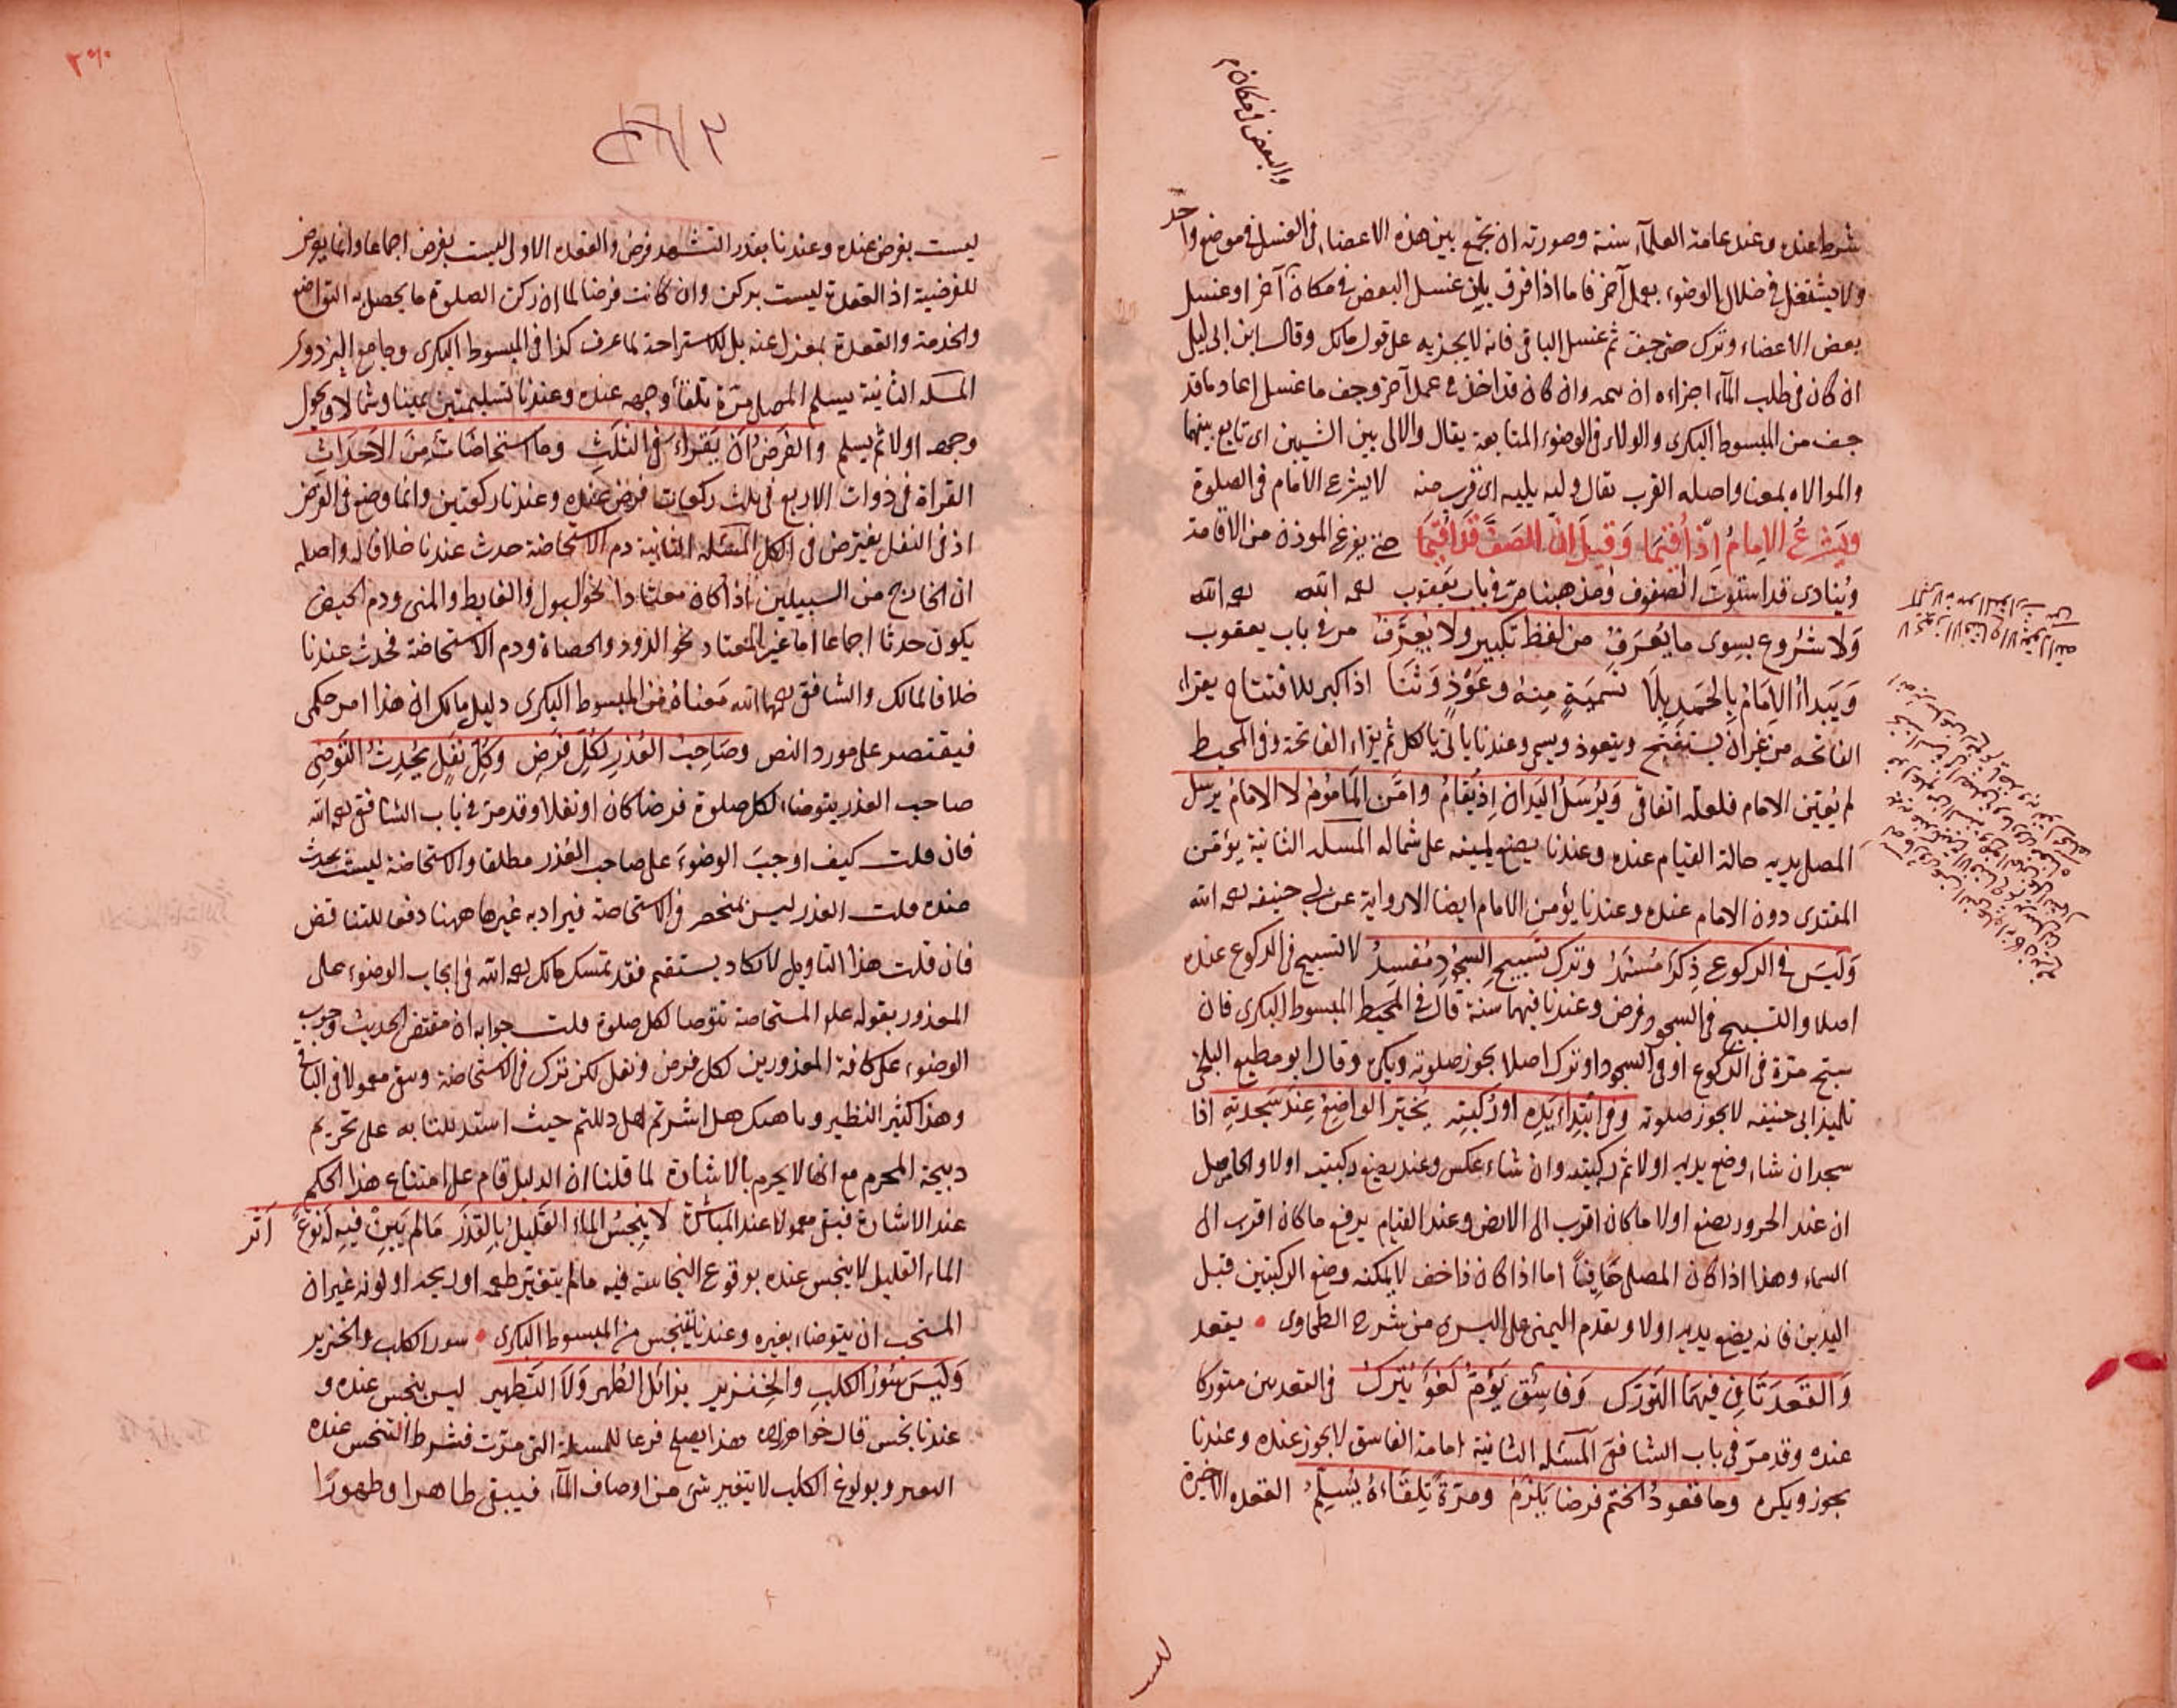 والبعض في مكان م
شرط عنده وعند عامة العلماء سنة وصورته ان يجمع بين هذه الاعضاء في الغسل في موضع واحد
ولا يشتغل في خلال الوضوء بعمل آخر فاما اذا فرق بان غسل البعض في مكان آخر او غسل
بعض الاعضاء وترك حتى جف ثم غسل الباقي فانه لا يجزيه على قول مالك وقال ابن ابي ليلى
ان كان في طلب الماء اجزاءه وان كان قد اخذ في عمل آخر وجف ما غسل اعاد ما قد
جف من المبسوط البكرى والولاء في الوضوء المتابعة يقال والالى بين الشيئين اى تابع بينهما
والموالاه بمعناه واصله القرب يقال وليه يليه اى قرب منه لا يشرع الامام في الصلوة
ويشرع الامام اذ اقيما وقيل ان الصف قد اقيما حتى يفرغ الموذن من الاقامة
وينادى قد استوت الصفوف ومذهبنا مر في باب يعقوب رحمه الله رحمه الله
ولا شروع بسوى ما يعرف من لفظ تكبير ولا يعرف مر في باب يعقوب
ويبداء الامام بالحمد بلا تسمية منه وعوذ وثنا اذا كبر للافتتاح يقراء
الفاتحه من غير ان يستفتح ويتعوذ ويسمى وعندنا ياتى بالكل ثم يقراء الفاتحة وفى المحيط
لم يعين الامام فلعله اتفاقى ويرسل اليدان اذ يقام وامن الماموم لا الامام يرسل
المصلى يديه حالة القيام عنده وعندنا يضع يمينه على شماله المسئله الثانية يؤمن
المقتدى دون الامام عنده وعندنا يؤمن الامام ايضا الا رواية عن ابى حنيفه رحمه الله
وليس في الركوع ذكر مستمر وترك تسبيح السجود مفسد لا تسبيح في الركوع عنده
اصلا والتسبيح في السجود فرض وعندنا فيهما سنة قال في المحيط المبسوط البكرى فان
سبح مرة في الركوع او في السجود او ترك اصلا يجوز صلوته ويكره وقال ابو مطيع البلخى
تلميذ ابى حنيفه لا يجوز صلوته وفى ابتداء يده او ركبته يخير الواضع عند سجدته اذا
سجد ان شاء وضع يديه اولا ثم ركبتيه وان شاء عكس وعندنا يضع ركبتيه اولا والحاصل
ان عند الخرور يضع اولا ما كان اقرب الى الارض وعند القيام يرفع ما كان اقرب الى
السماء وهذا اذا كان المصلى حافيا اما اذا كان ذا خف لا يمكنه وضع الركبتين قبل
اليدين فانه يضع يديه اولا ويقدم اليمنى على اليسرى من شرح الطحاوى يقعد
والقعدتان فيهما التورك وفاسق يؤم لغو يترك في القعدتين متوركا
عنده وقد مر في باب الشافعى المسئله الثانية امامة الفاسق لا يجوز عنده وعندنا
يجوز ويكره وما قعود الختم فرضا يلزم ومرة تلقاءه يسلم القعده الاخيرة
ليست بفرض عنده وعندنا بقدر التشهد فرض والقعده الاولى ليست بفرض اجماعا وانما يعرض
للفرضية اذ القعدة ليست بركن وان كانت فرضا لما ان ركن الصلوة ما يحصل به التواضع
والخدمة والقعدة بمعزل عنه بل للاستراحة لما عرف كذا في المبسوط البكرى وجامع البزدوى
المسئله الثانية يسلم المصلى مرة تلقاء وجهه عنده وعندنا تسليمتين يمينا وشمالا ويحول
وجهه اولا ثم يسلم والفرض ان يقراء في الثلث وما استحاضات من الاحداث
القراة في ذوات الاربع في ثلث ركعات فرض عنده وعندنا ركعتين وانما وضع في الفرض
اذ في النفل يفترض في الكل المسئله الثانية دم الاستحاضة حدث عندنا خلافا له واصله
ان الخارج من السبيلين اذا كان معتادا نحو البول والغايط والمنى ودم الحيض
يكون حدثا اجماعا اما غير المعتاد نحو الدود والحصاة ودم الاستحاضة فحدث عندنا
خلافا لمالك والشافعى رحمهما الله معناه من المبسوط البكرى دليل مالك ان هذا امر حكمى
فيقتصر على مورد النص وصاحب العذر لكل فرض وكل نفل يحدث التوضى
صاحب العذر يتوضاء لكل صلوة فرضا كان او نفلا وقد مر في باب الشافعى رحمه الله
فان قلت كيف اوجب الوضوء على صاحب العذر مطلقا والاستحاضة ليست بحدث
عنده قلت العذر ليس بمنحصر في الاستحاضة فيراد به غيرها ههنا دفعا للتناقض
فان قلت هذا التاويل لا يكاد يستقيم فقد تمسك مالك رحمه الله في ايجاب الوضوء على
المعذور بقوله علم المستحاضة تتوضا لكل صلوة قلت جوابه ان مقتضى الحديث وجوب
الوضوء على كافة المعذورين لكل فرض ونفل لكن ترك في الاستحاضة وبقى معمولا في الباقى
وهذا كثير النظير وناهيك هل اشرتم هل دللتم حيث استدللنا به على تحريم
ذبيحة المحرم مع انها لا يحرم بالاشارة لما قلنا ان الدليل قام على امتناع هذا الحكم
عند الاشارة فبقى معمولا عند المباشرة لا ينجس الماء القليل بالقذر ما لم يبن فيه لنوع اثر
الماء القليل لا ينجس عنده بوقوع النجاسة فيه مالم يتغير طعمه او ريحه او لونه غير ان
المستحب ان يتوضاء بغيره وعندنا يتنجس من المبسوط البكرى سور الكلب والخنزير
وليس سئور الكلب والخنزير بزائل الطهر ولا التطهير ليس بنجس عنده و
عندنا نجس قال خواهرزاده هذا يصلح فرعا للمسئلة التى مرت فشرط التنجس عنده
التغير وبولوغ الكلب لا يتغير شى من اوصاف الماء فيبقى طاهرا وطهورا